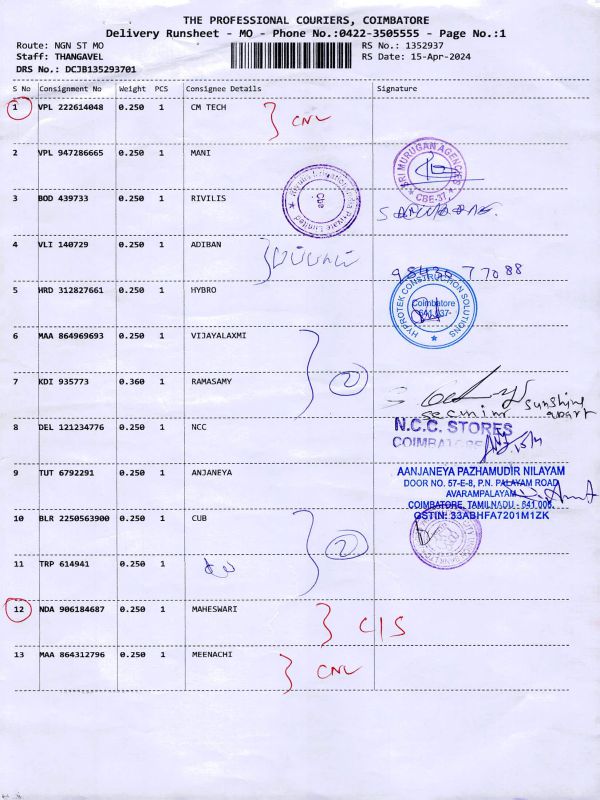 THE PROFESSIONAL COURIERS, COIMBATORE
Delivery Runsheet - MO - Phone No.:0422-3505555 - Page No.:1
Route: NGN ST MO
RS No.: 1352937
Staff: THANGAVEL
RS Date: 15-Apr-2024
DRS No.: DCJB135293701
S No Consignment No Weight PCS Consignee Details Signature
1 VPL 222614048 0.250 1 CM TECH
CNL
2 VPL 947286665 0.250 1 MANI
SRI MURUGAN AGENCIES
CBE-37.
3 BOD 439733 0.250 1 RIVILIS
Private Limited
Cbe
4 VLI 140729 0.250 1 ADIBAN
98430 77088
5 HRD 312827661 0.250 1 HYBRO
HYPROTEK CONSTRUCTION SOLUTIONS
Coimbatore
641 037-
6 MAA 864969693 0.250 1 VIJAYALAXMI
2
7 KDI 935773 0.360 1 RAMASAMY
sunshine
apart
8 DEL 121234776 0.250 1 NCC
N.C.C. STORES
COIMBATORE
15/4
9 TUT 6792291 0.250 1 ANJANEYA
AANJANEYA PAZHAMUDIR NILAYAM
DOOR NO. 57-E-8, P.N. PALAYAM ROAD
AVARAMPALAYAM
COIMBATORE, TAMILNADU - 641 006.
GSTIN: 33ABHFA7201M1ZK
10 BLR 2250563900 0.250 1 CUB
2
11 TRP 614941 0.250 1
12 NDA 906184687 0.250 1 MAHESWARI
C/S
13 MAA 864312796 0.250 1 MEENACHI
CNL